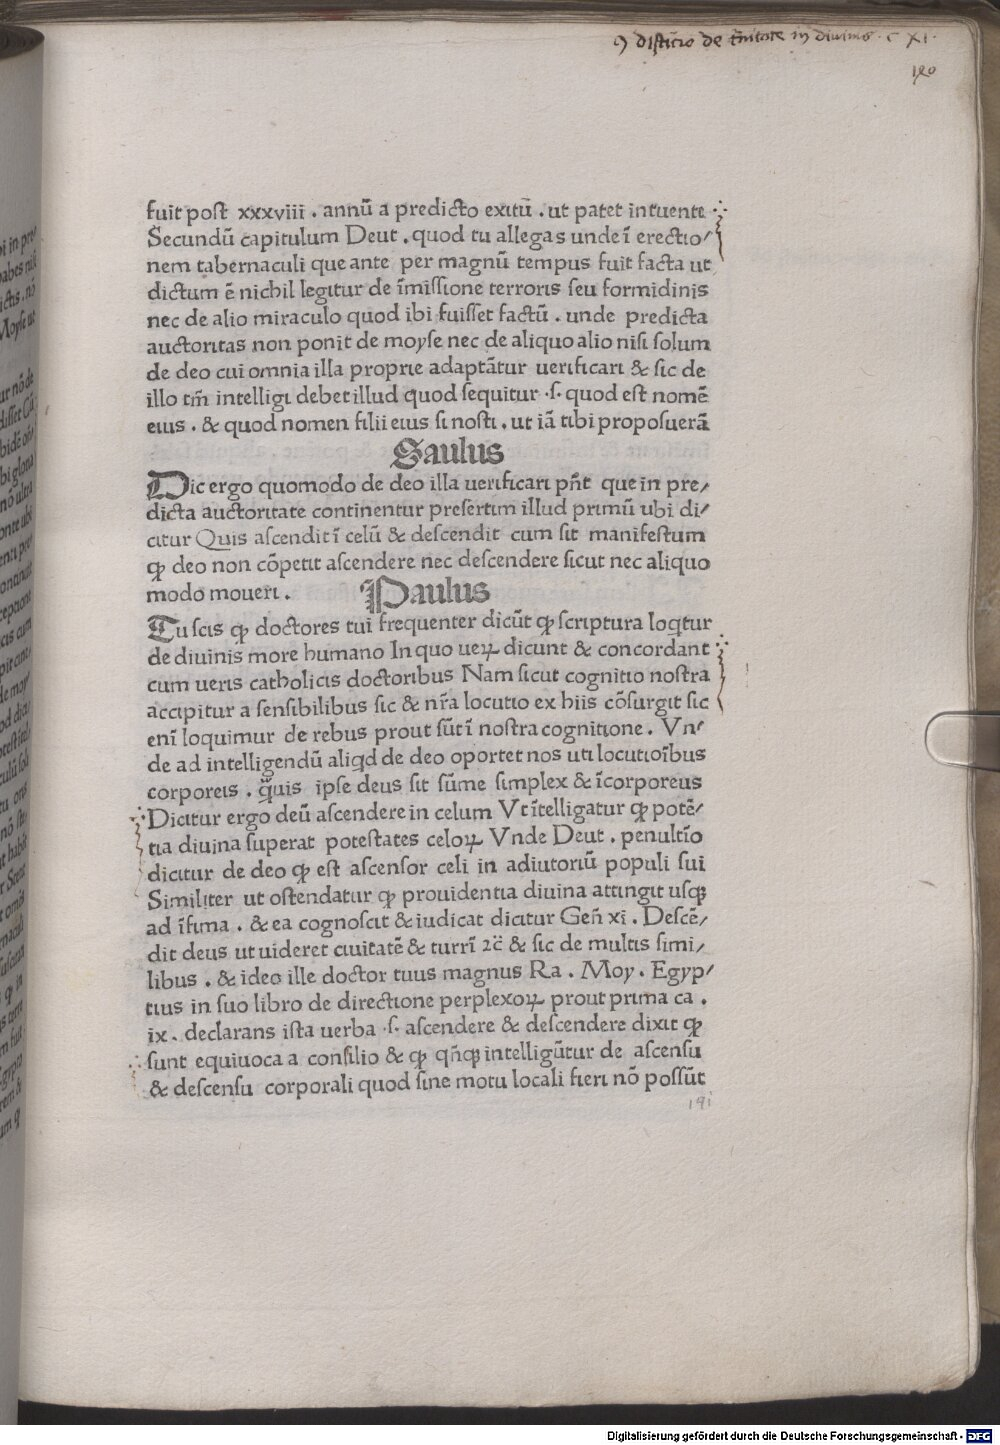 9 distinctio de trinitate in divinis · c XI ·
190
fuit post xxxviii . annū a predicto exitū . ut patet intuente
Secundū capitulum Deut . quod tu allegas unde ī erectio/
nem tabernaculi que ante per magnū tempus fuit facta ut
dictum ē nichil legitur de īmissione terroris seu formidinis
nec de alio miraculo quod ibi fuisset factū . unde predicta
auctoritas non ponit de moyse nec de aliquo alio nisi solum
de deo cui omnia illa proprie adaptātur uerificari & sic de
illo tm̄ intelligi debet illud quod sequitur ·s· quod est nomē
eius . & quod nomen filii eius si nosti . ut iā tibi proposuerā
Saulus
Dic ergo quomodo de deo illa uerificari pn̄t que in pre/
dicta auctoritate continentur presertim illud primū ubi di/
citur Quis ascendit ī celū & descendit cum sit manifestum
ꝙ deo non cōpetit ascendere nec descendere sicut nec aliquo
modo moueri .
Paulus
Tu scis ꝙ doctores tui frequenter dicūt ꝙ scriptura loq̄tur
de diuinis more humano In quo ueꝝ dicunt & concordant
cum ueris catholicis doctoribus Nam sicut cognitio nostra
accipitur a sensibilibus sic & nr̄a locutio ex hiis cōsurgit sic
enī loquimur de rebus prout sūt ī nostra cognitione . Vn/
de ad intelligendū aliqd de deo oportet nos uti locutoībus
corporeis . q̄uis ipse deus sit sūme simplex & īcorporeus
Dicitur ergo deū ascendere in celum Vt ītelligatur ꝙ potē/
tia diuina superat potestates celoꝝ Vnde Deut . penultīo
dicitur de deo ꝙ est ascensor celi in adiutoriū populi sui
Similiter ut ostendatur ꝙ prouidentia diuina attingit usqꝫ
ad īfima . & ea cognoscit & iudicat dicitur Gen̄ xi . Descē/
dit deus ut uideret ciuitatē & turrī ⁊c̄ & sic de multis simi/
libus . & ideo ille doctor tuus magnus Ra . Moy . Egyp/
tius in suo libro de directione perplexoꝝ prout prima ca .
ix . declarans ista uerba ·s· ascendere & descendere dixit ꝙ
sunt equiuoca a consilio & ꝙ qn̄qꝫ intelligūtur de ascensu
& descensu corporali quod sine motu locali fieri nō possūt
191
Digitalisierung gefördert durch die Deutsche Forschungsgemeinschaft - DFG